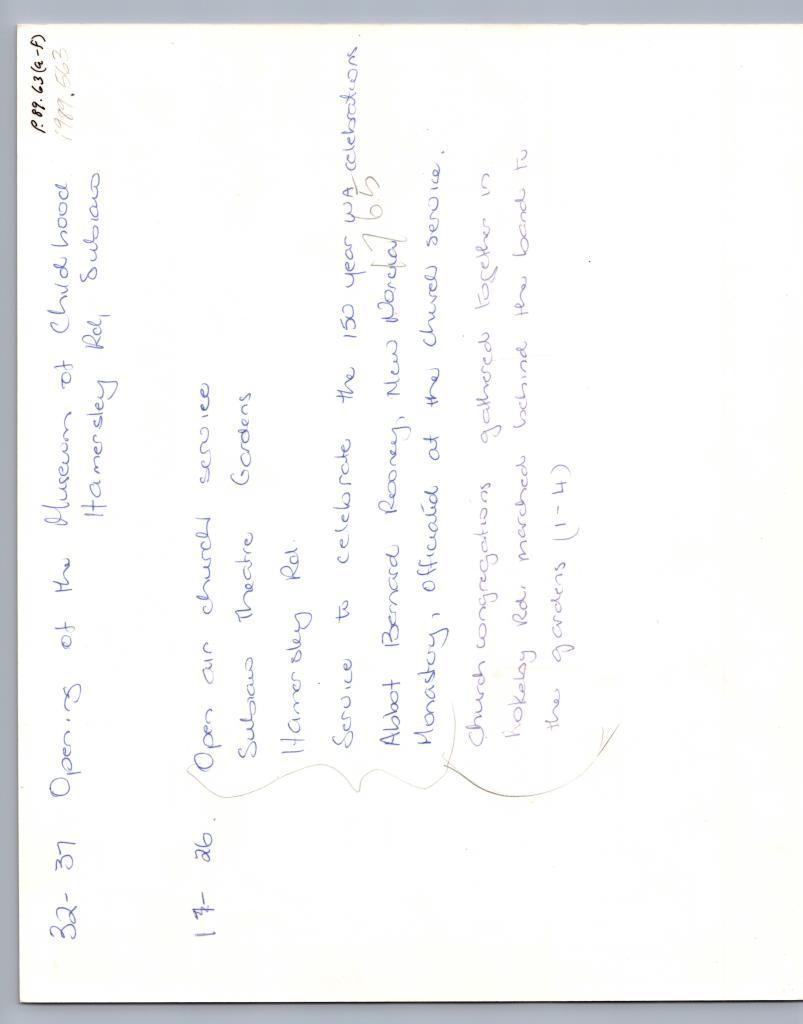 P.89.63(a-f)
1989.563
32-37 Opening of the Museum of Childhood
Hamersley Rd, Subiaco
17-26. Open air church service
Subiaco Theatre Gardens
Hamersley Rd.
Service to celebrate the 150 year WA celebrations
Abbot Bernard Rooney, New Norcia
Monastery, officiated at the church service.
Church congregations gathered together in
Rokeby Rd, marched behind the band to
the gardens (1-4)